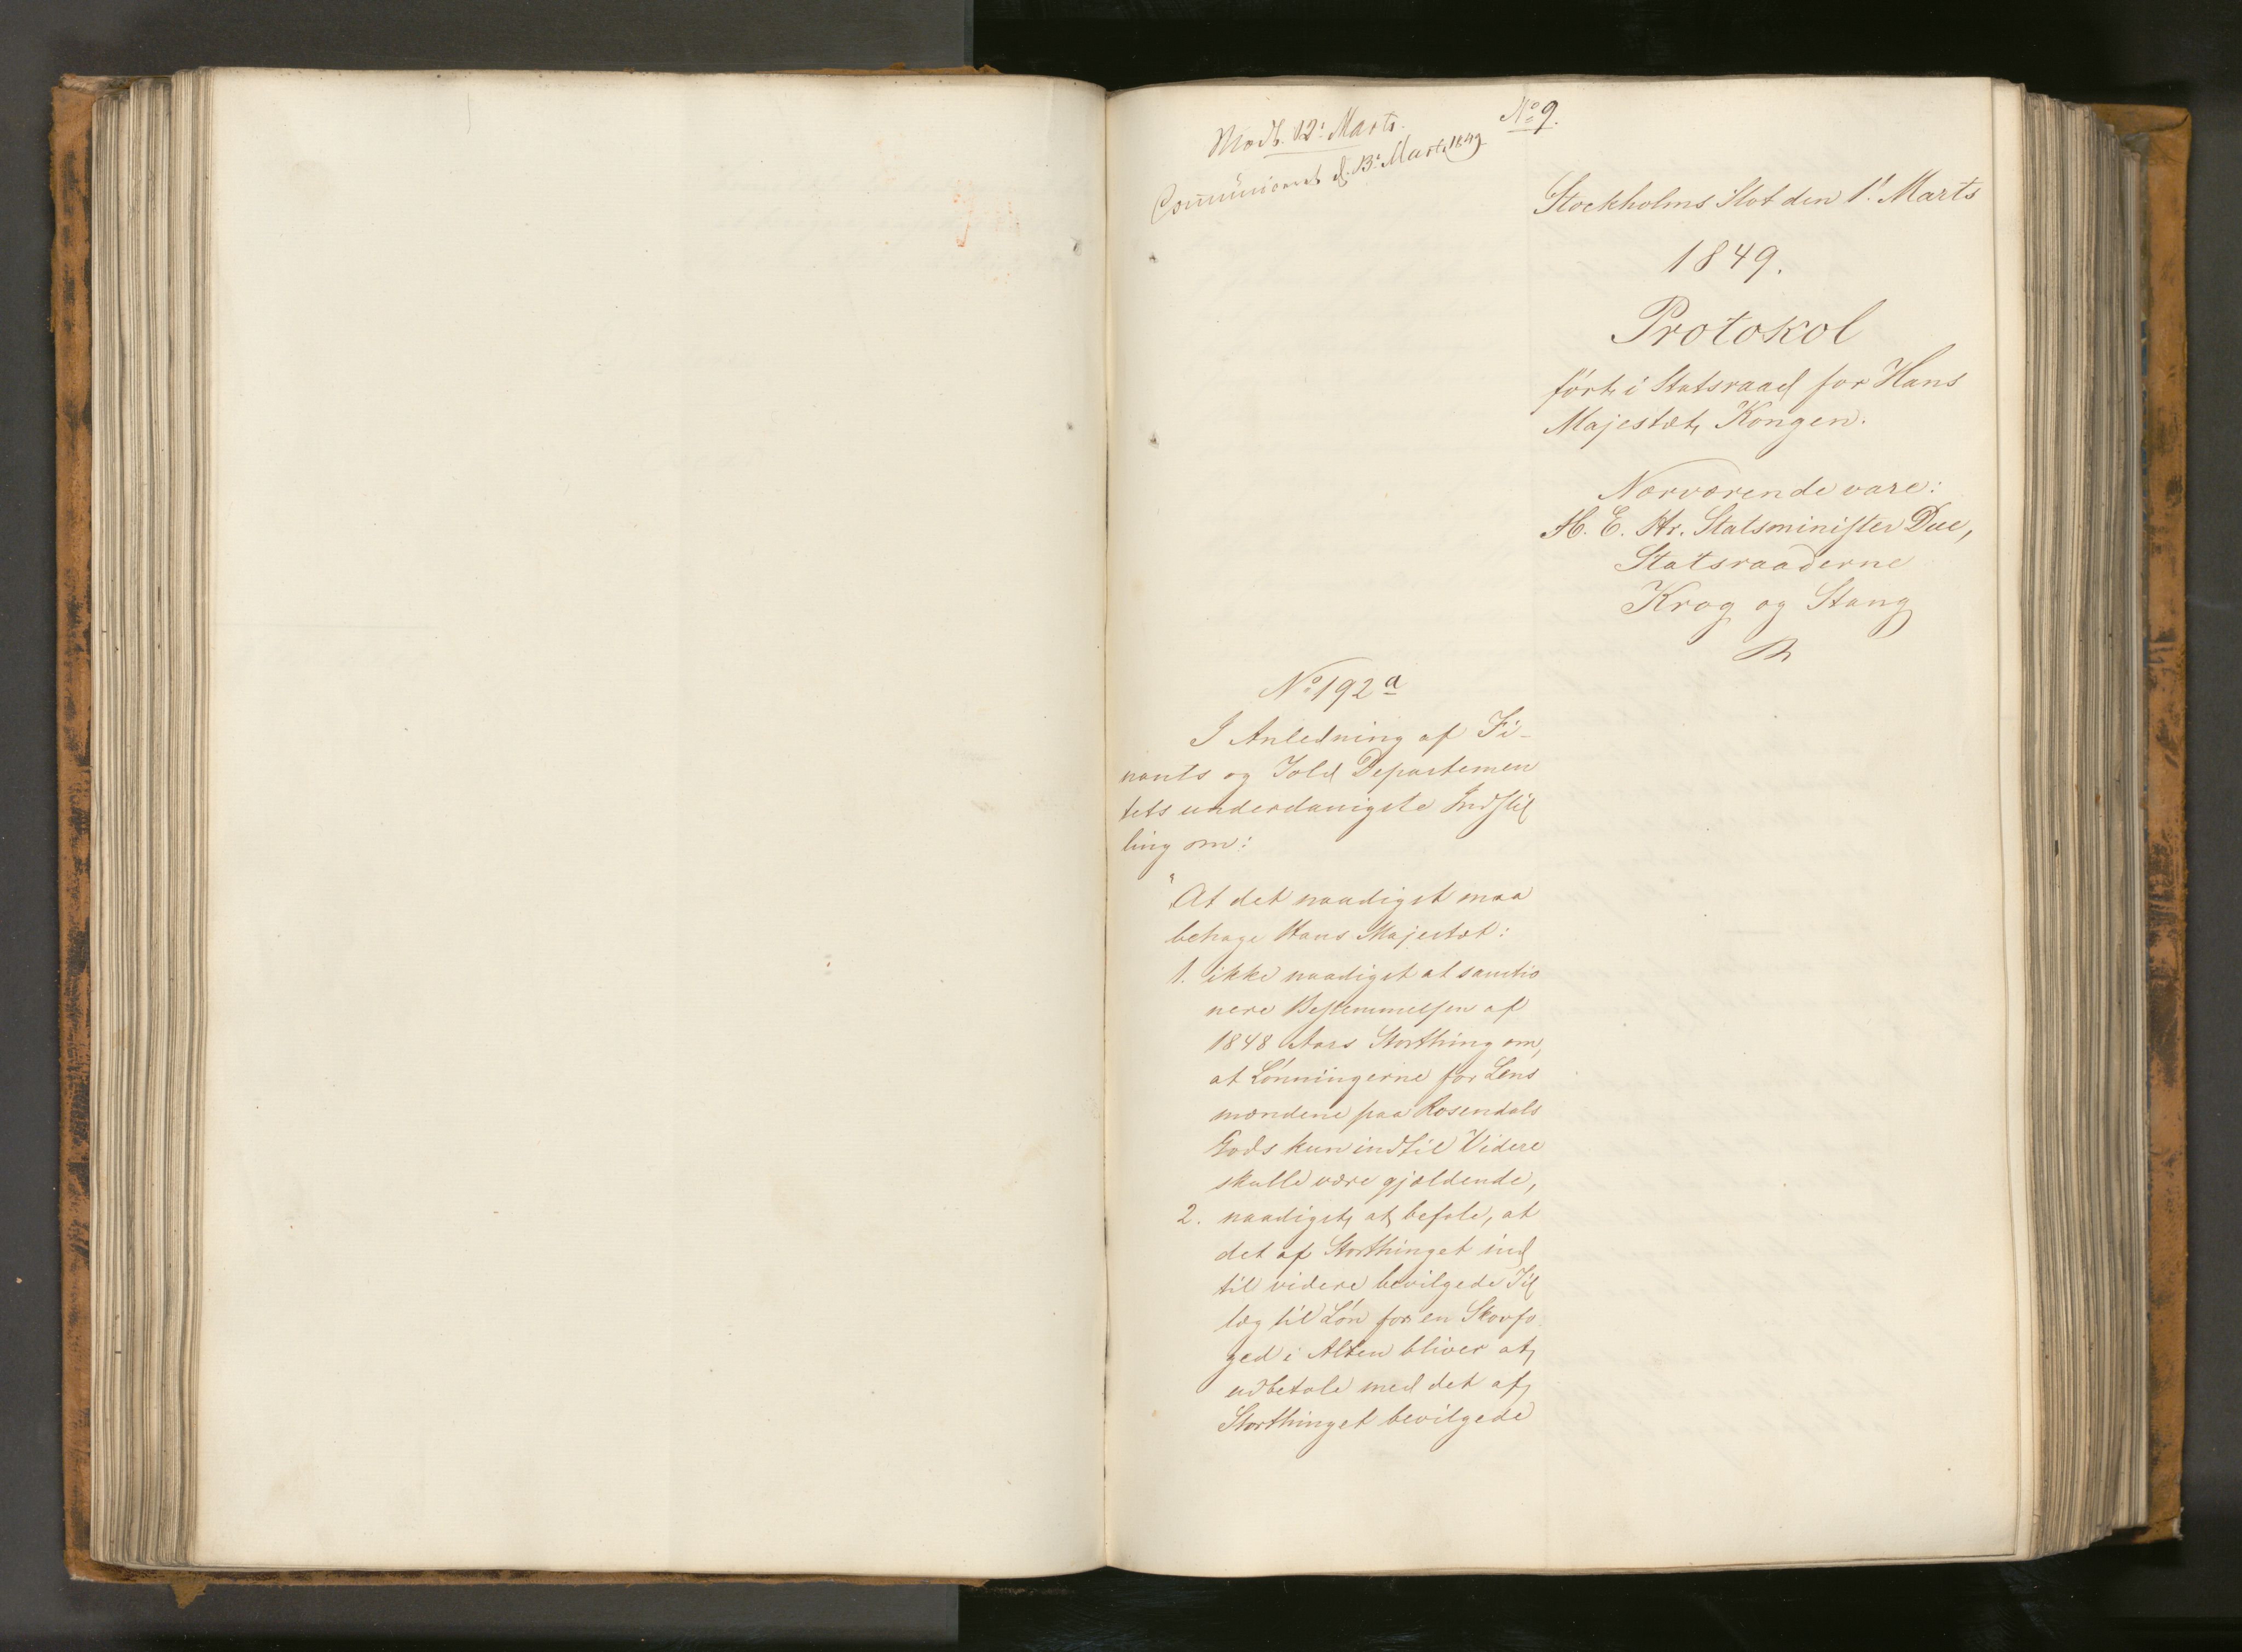 Modt. 12' Marts.
Communiceret d. 13' Marts 1849
No 9.
Stockholms Slot den 1' Marts
1849.
Protokol
ført i Statsraad for Hans
Majestæt Kongen.
Nærværende vare:
H. E. Hr. Statsminister Due,
Statsraaderne
Krog og Stang
No 192 a
I Anledning af Fi-
nants og Told Departemen
tets underdanigste Indstil
ling om:
"At det naadigst maa
behage Hans Majestæt:
1. ikke naadigst at sanctio
nere Bestemmelsen af
1848 Aars Storthing om,
at Lønningerne for Lens
mændene paa Rosendals
Gods kun indtil Videre
skulle være gjældende,
2. naadigst at befale, at
det af Storthinget ind
til videre bevilgede Til
læg til Løn for en Skovfo
ged i Alten bliver at
udbetale med det af
Storthinget bevilgede